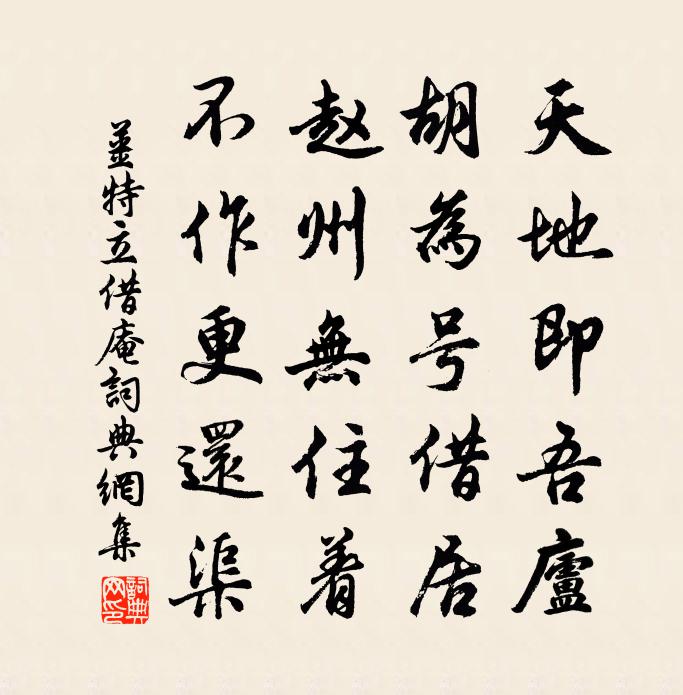 天地即吾廬
胡為号借居
赵州無住着
不作更還渠
姜特立借庵詞典網集
詞典網印